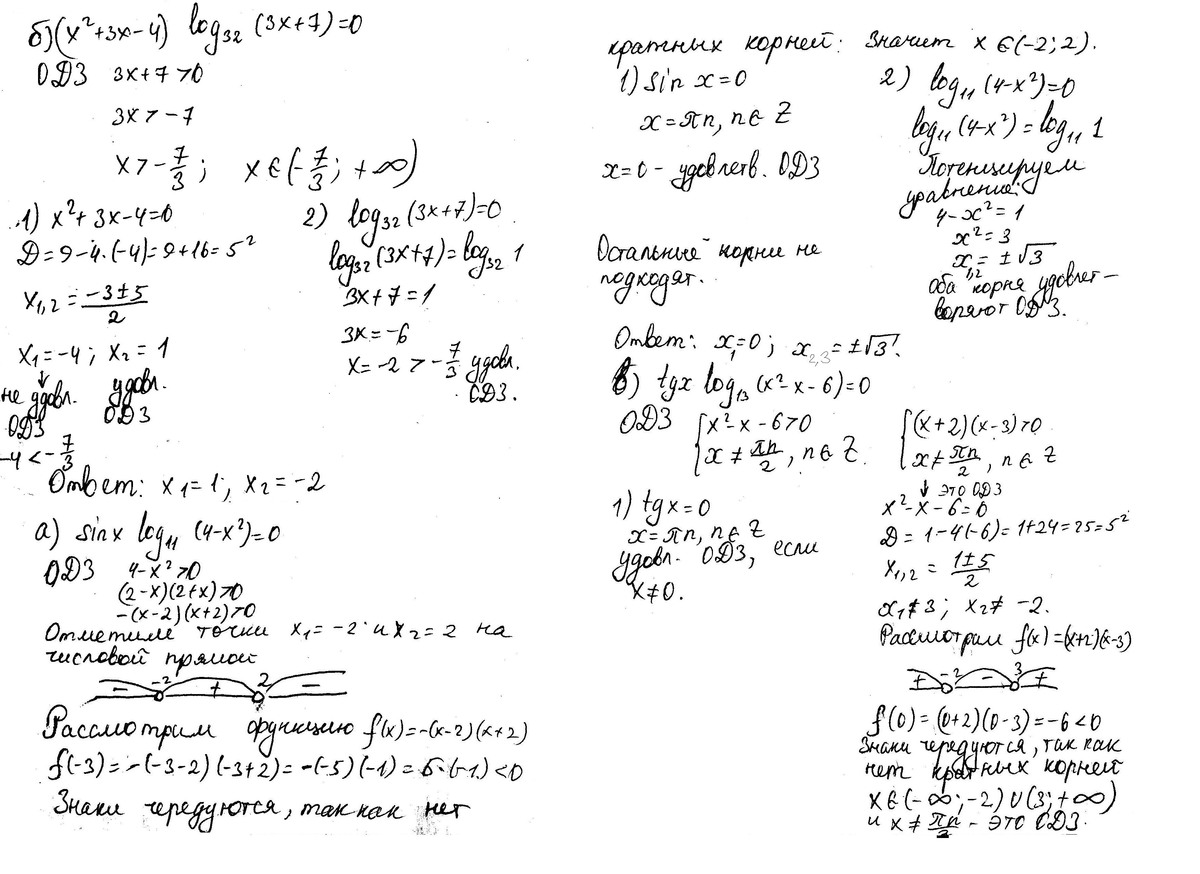 б) (x²+3x-4) log₃₂ (3x+7)=0
ОДЗ 3x+7>0
3x>-7
x>-7/3; x∈(-7/3; +∞)
1) x²+3x-4=0
D=9-4·(-4)=9+16=5²
x₁,₂ = (-3±5)/2
x₁=-4; x₂=1
↓
не удовл. ОДЗ
удовл. ОДЗ
-4<-7/3
2) log₃₂(3x+7)=0
log₃₂(3x+7)=log₃₂ 1
3x+7=1
3x=-6
x=-2>-7/3 удовл.
ОДЗ.
Ответ: x₁=1, x₂=-2
а) sinx log₁₁ (4-x²)=0
ОДЗ 4-x²>0
(2-x)(2+x)>0
-(x-2)(x+2)>0
Отметим точки x₁=-2 и x₂=2 на
числовой прямой
- -2 + 2 -
Рассмотрим функцию f(x)=-(x-2)(x+2)
f(-3)=-(-3-2)(-3+2)=-(-5)(-1)=5·(-1)<0
Знаки чередуются, так как нет
кратных корней: Значит x∈(-2;2).
1) sin x=0
x=πn, n∈Z
x=0 - удовлетв. ОДЗ
Остальные корни не
подходят.
2) log₁₁ (4-x²)=0
log₁₁ (4-x²)=log₁₁ 1
Потенцируем
уравнение:
4-x²=1
x²=3
x₁,₂=±√3
оба корня удовлет-
воряют ОДЗ.
Ответ: x₁=0; x₂,₃=±√3.
в) tgx log₁₃ (x²-x-6)=0
ОДЗ { x²-x-6>0
x≠πn/2, n∈Z.
{ (x+2)(x-3)>0
x≠πn/2, n∈Z
↓ это ОДЗ
1) tgx=0
x=πn, n∈Z
удовл. ОДЗ, если
x≠0.
x²-x-6=0
D=1-4(-6)=1+24=25=5²
x₁,₂ = (1±5)/2
x₁≠3; x₂≠-2.
Рассмотрим f(x)=(x+2)(x-3)
+ -2 - 3 +
f(0)=(0+2)(0-3)=-6<0
Знаки чередуются, так как
нет кратных корней
x∈(-∞;-2)∪(3;+∞)
и x≠πn/2 - это ОДЗ.